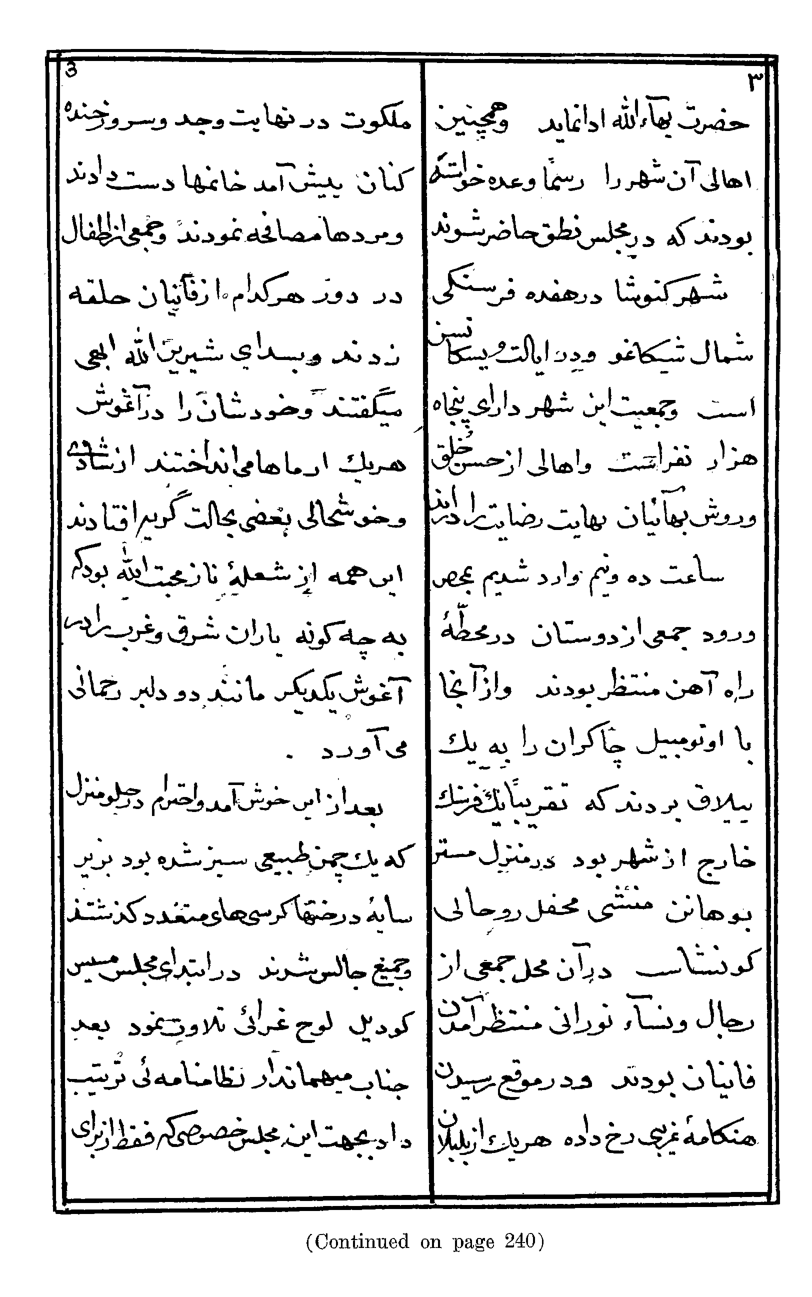 ۳
حضرت بهاءالله ادانماید وهمچنین
اهالی آن شهر را رسمًا وعده خواسته
بودند که در مجلس نطق حاضر شوند
شهر کنوشا درهفده فرسنکی
شمال شیکاغو ودر ایالت ویسکانسن
است وجمعیت این شهر دارای پنجاه
هزار نفراست واهالی از حسن خُلق
وروش بهائیان نهایت رضایت را دارند
ساعت ده ونیم وارد شدیم بمحض
ورود جمعی از دوستان در محطّهٔ
راه آهن منتظر بودند وازآنجا
با اوتومبیل چاکران را به یك
ییلاق بردند که تقریبًا یك فرسنك
خارج از شهر بود در منزل مستر
بوهانن منشی محفل روحانی
کونشاست درآن محل جمعی از
رجال ونسآء نورانی منتظر آمدن
فانیان بودند ودر موقع رسیدن
هنکامهٔ غریبی رخ داده هریك ازبلبلان
3
ملکوت در نهایت وجد وسرور خنده
کنان پیش آمد خانمها دست دادند
ومردها مصافحه نمودند وجمعی ازاطفال
در دور هرکدام ازفانیان حلقه
زدند وبصدای شیرین الله ابهی
میگفتند وخودشان را درآغوش
هریك ازماها می‌انداختند از شادی
وخوشحالی بعضی بحالت گریه افتادند
این همه از شعلهٔ نار محبت الله بود که
به چه کونه یاران شرق وغرب را در
آغوش یکدیکر مانند دو دلبر رحمانی
می آورد .
بعداز این خوش آمد واحترام درجلو منزل
که یك چمن طبیعی سبز شده بود بزیر
سایهٔ درختها کرسی های متعدد کذشتند
وجمیع جالس شدند در ابتدای مجلس مسیس
کودیل لوح غرائی تلاوت نمود بعد
جناب میهماندار نظامنامه ئی ترتیب
داد بجهت این مجلس خصوصی که فقط از برای
(Continued on page 240)